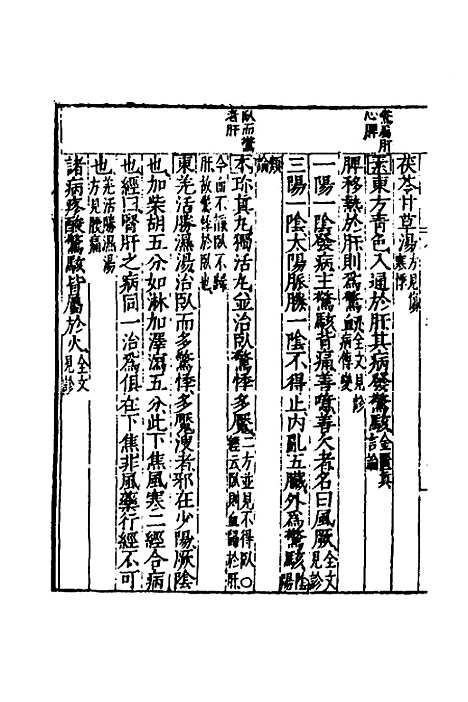 茯苓甘草湯方見傷寒悸
驚屬肝心脾
素東方青色入通於肝其病發驚駭金匱真言論
脾移熱於肝則為驚衄全文見診血病傳變
一陽一陰發病主驚駭背痛善噫善欠者名曰風厥全文見診
三陽一陰太陽脈勝一陰不得止內亂五臟外為驚駭陰陽
類論
臥而驚者肝
本珍真丸獨活丸並治臥驚悸多魘二方並見不得臥○經云臥則血歸於肝
今血不歸肝故驚悸於臥也
東羌活勝濕湯治臥而多驚悸多魘溲者邪在少陽厥陰
也加柴胡五分如淋加澤瀉五分此下焦風寒二經合病
也經曰腎肝之病同一治為俱在下焦非風藥行經不可
也羌活勝濕湯方見腰痛
諸病疼酸驚駭皆屬於火全文見診